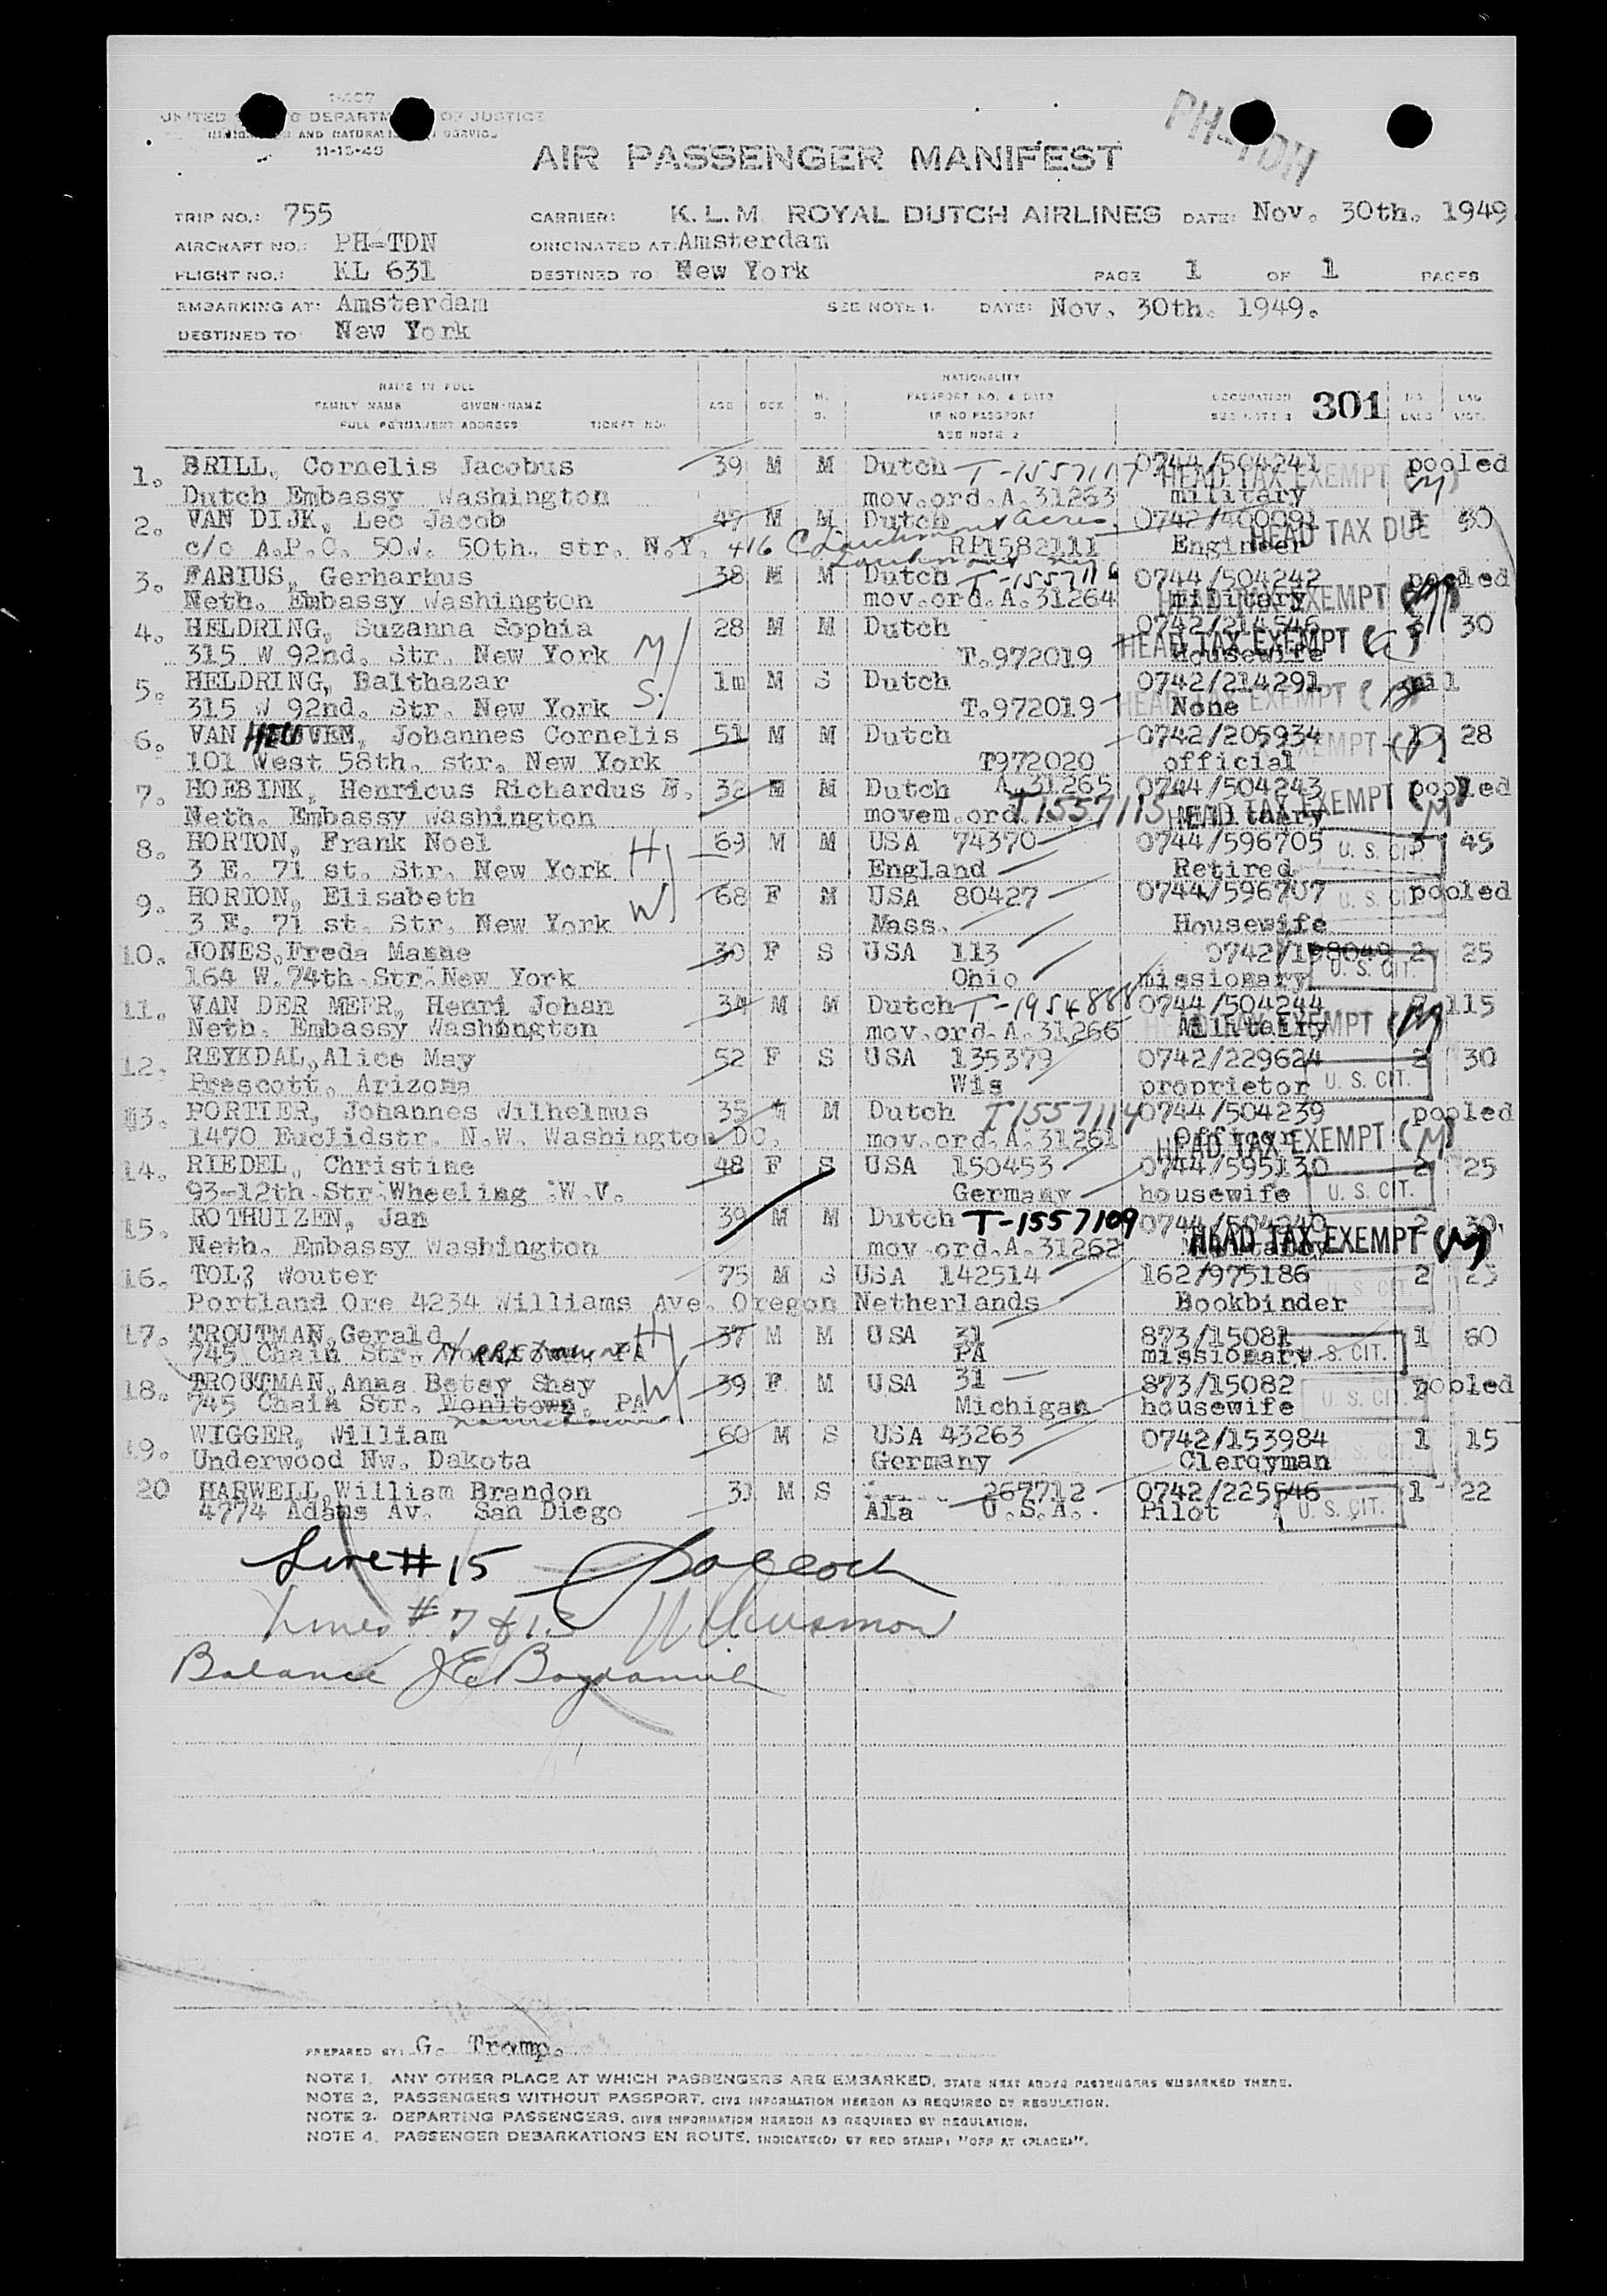 UNITED DEPARTM OF JUSTICE
AND NATURAL SERVICE
PH-TDN
AIR PASSENGER MANIFEST
TRIP NO.: 755 CARRIER: K.L.M. ROYAL DUTCH AIRLINES DATE: Nov. 30th. 1949
AIRCRAFT NO.: PH-TDN ORIGINATED AT: Amsterdam
FLIGHT NO.: KL 631 DESTINED TO New York PAGE 1 OF 1 PAGES
EMBARKING AT: Amsterdam SEE NOTE 1. DATE: Nov. 30th. 1949.
DESTINED TO New York
NAME IN FULL NATIONALITY
FAMILY NAME GIVEN NAME AGE SEX M. PASSPORT NO. & DATE OCCUPATION 301 NO.
S. IF NO PASSPORT
FULL PERMANENT ADDRESS TICKET NO. SEE NOTE 2
1. BRILL, Cornelis Jacobus 39 M M Dutch T-1557117 0744/504241 pooled
Dutch Embassy Washington mov.ord.A.31263 military HEAD TAX EXEMPT (M)
2. VAN DIJK, Leo Jacob M M Dutch 1 30
c/o A.P.C. 50W. 50th. str. N.Y. 416 RP1582111 Engineer HEAD TAX DUE
3. FABIUS, Gerharhus 38 M M Dutch T-1557116 0744/504242 pooled
Neth. Embassy Washington mov.ord.A.31264 military HEAD TAX EXEMPT
4. HELDRING, Suzanna Sophia 28 M M Dutch 0742/214546 3 30
315 W 92nd. Str. New York M T.972019 Housewife HEAD TAX EXEMPT
5. HELDRING, Balthazar 1m M S Dutch 0742/214291 nil
315 W 92nd. Str. New York S. T.972019 None HEAD TAX EXEMPT
6. VAN HEUVEN, Johannes Cornelis 51 M M Dutch 0742/205934 1 28
101 West 58th. str. New York T972020 official EXEMPT
7. HOEBINK, Henricus Richardus 32 M M Dutch A.31265 0744/504243 pooled
Neth. Embassy Washington movem.ord. T1557115 Military HEAD TAX EXEMPT (M)
8. HORTON, Frank Noel H 69 M M USA 74370 0744/596705 3 45
3 E. 71 st. Str. New York England Retired U. S. CIT.
9. HORTON, Elisabeth 68 F M USA 80427 0744/596707 pooled
3 E. 71 st. Str. New York W Mass. Housewife U. S. CIT.
10. JONES,Freda Manne 30 F S USA 113 0742/198049 2 25
164 W.74th.Str.New York Ohio missionary U. S. CIT.
11. VAN DER MEER, Henri Johan 34 M M Dutch T-1954888 0744/504244 115
Neth. Embassy Washington mov.ord.A.31266 HEAD TAX EXEMPT (M)
12. REYKDAL,Alice May 52 F S USA 135379 0742/229624 2 30
Prescott, Arizona Wis proprietor U. S. CIT.
13. PORTIER, Johannes Wilhelmus 35 M M Dutch T1557114 0744/504239 pooled
1470 Euclidstr. N.W. Washington DC. mov.ord.A.31261 Officer HEAD TAX EXEMPT (M)
14. RIEDEL, Christine 48 F S USA 150453 0744/595130 2 25
93-12th.Str.Wheeling .W.V. Germany housewife U. S. CIT.
15. ROTHUIZEN, Jan 39 M M Dutch T-1557109 0744/504240 2 30
Neth. Embassy Washington mov.ord.A.31262 HEAD TAX EXEMPT (M)
16. TOL, Wouter 75 M S USA 142514 162/975186 2 25
Portland Ore 4234 Williams Ave. Oregon Netherlands Bookbinder U. S. CIT.
17. TROUTMAN,Gerald H 37 M M USA 31 873/15081 1 60
745 Chain Str. PA PA missionary U. S. CIT.
18. TROUTMAN,Anna Betsy Shay W 39 F M USA 31 873/15082 pooled
745 Chain Str. PA Michigan housewife U. S. CIT.
Norristown
19. WIGGER, William 60 M S USA 43263 0742/153984 1 15
Underwood Nw. Dakota Germany Clergyman S. CIT.
20 HARWELL,William Brandon 31 M S 267712 0742/225546 1 22
4774 Adams Av. San Diego Ala U.S.A. Pilot U. S. CIT.
Line #15
Lines #7 & 13
Balance
PREPARED BY: G. Tromp.
NOTE 1. ANY OTHER PLACE AT WHICH PASSENGERS ARE EMBARKED, STATE NEXT ABOVE PASSENGERS EMBARKED THERE.
NOTE 2. PASSENGERS WITHOUT PASSPORT, GIVE INFORMATION HEREON AS REQUIRED BY REGULATION.
NOTE 3. DEPARTING PASSENGERS, GIVE INFORMATION HEREON AS REQUIRED BY REGULATION.
NOTE 4. PASSENGER DEBARKATIONS EN ROUTE, INDICATE(D) BY RED STAMP: "OFF AT (PLACE)".